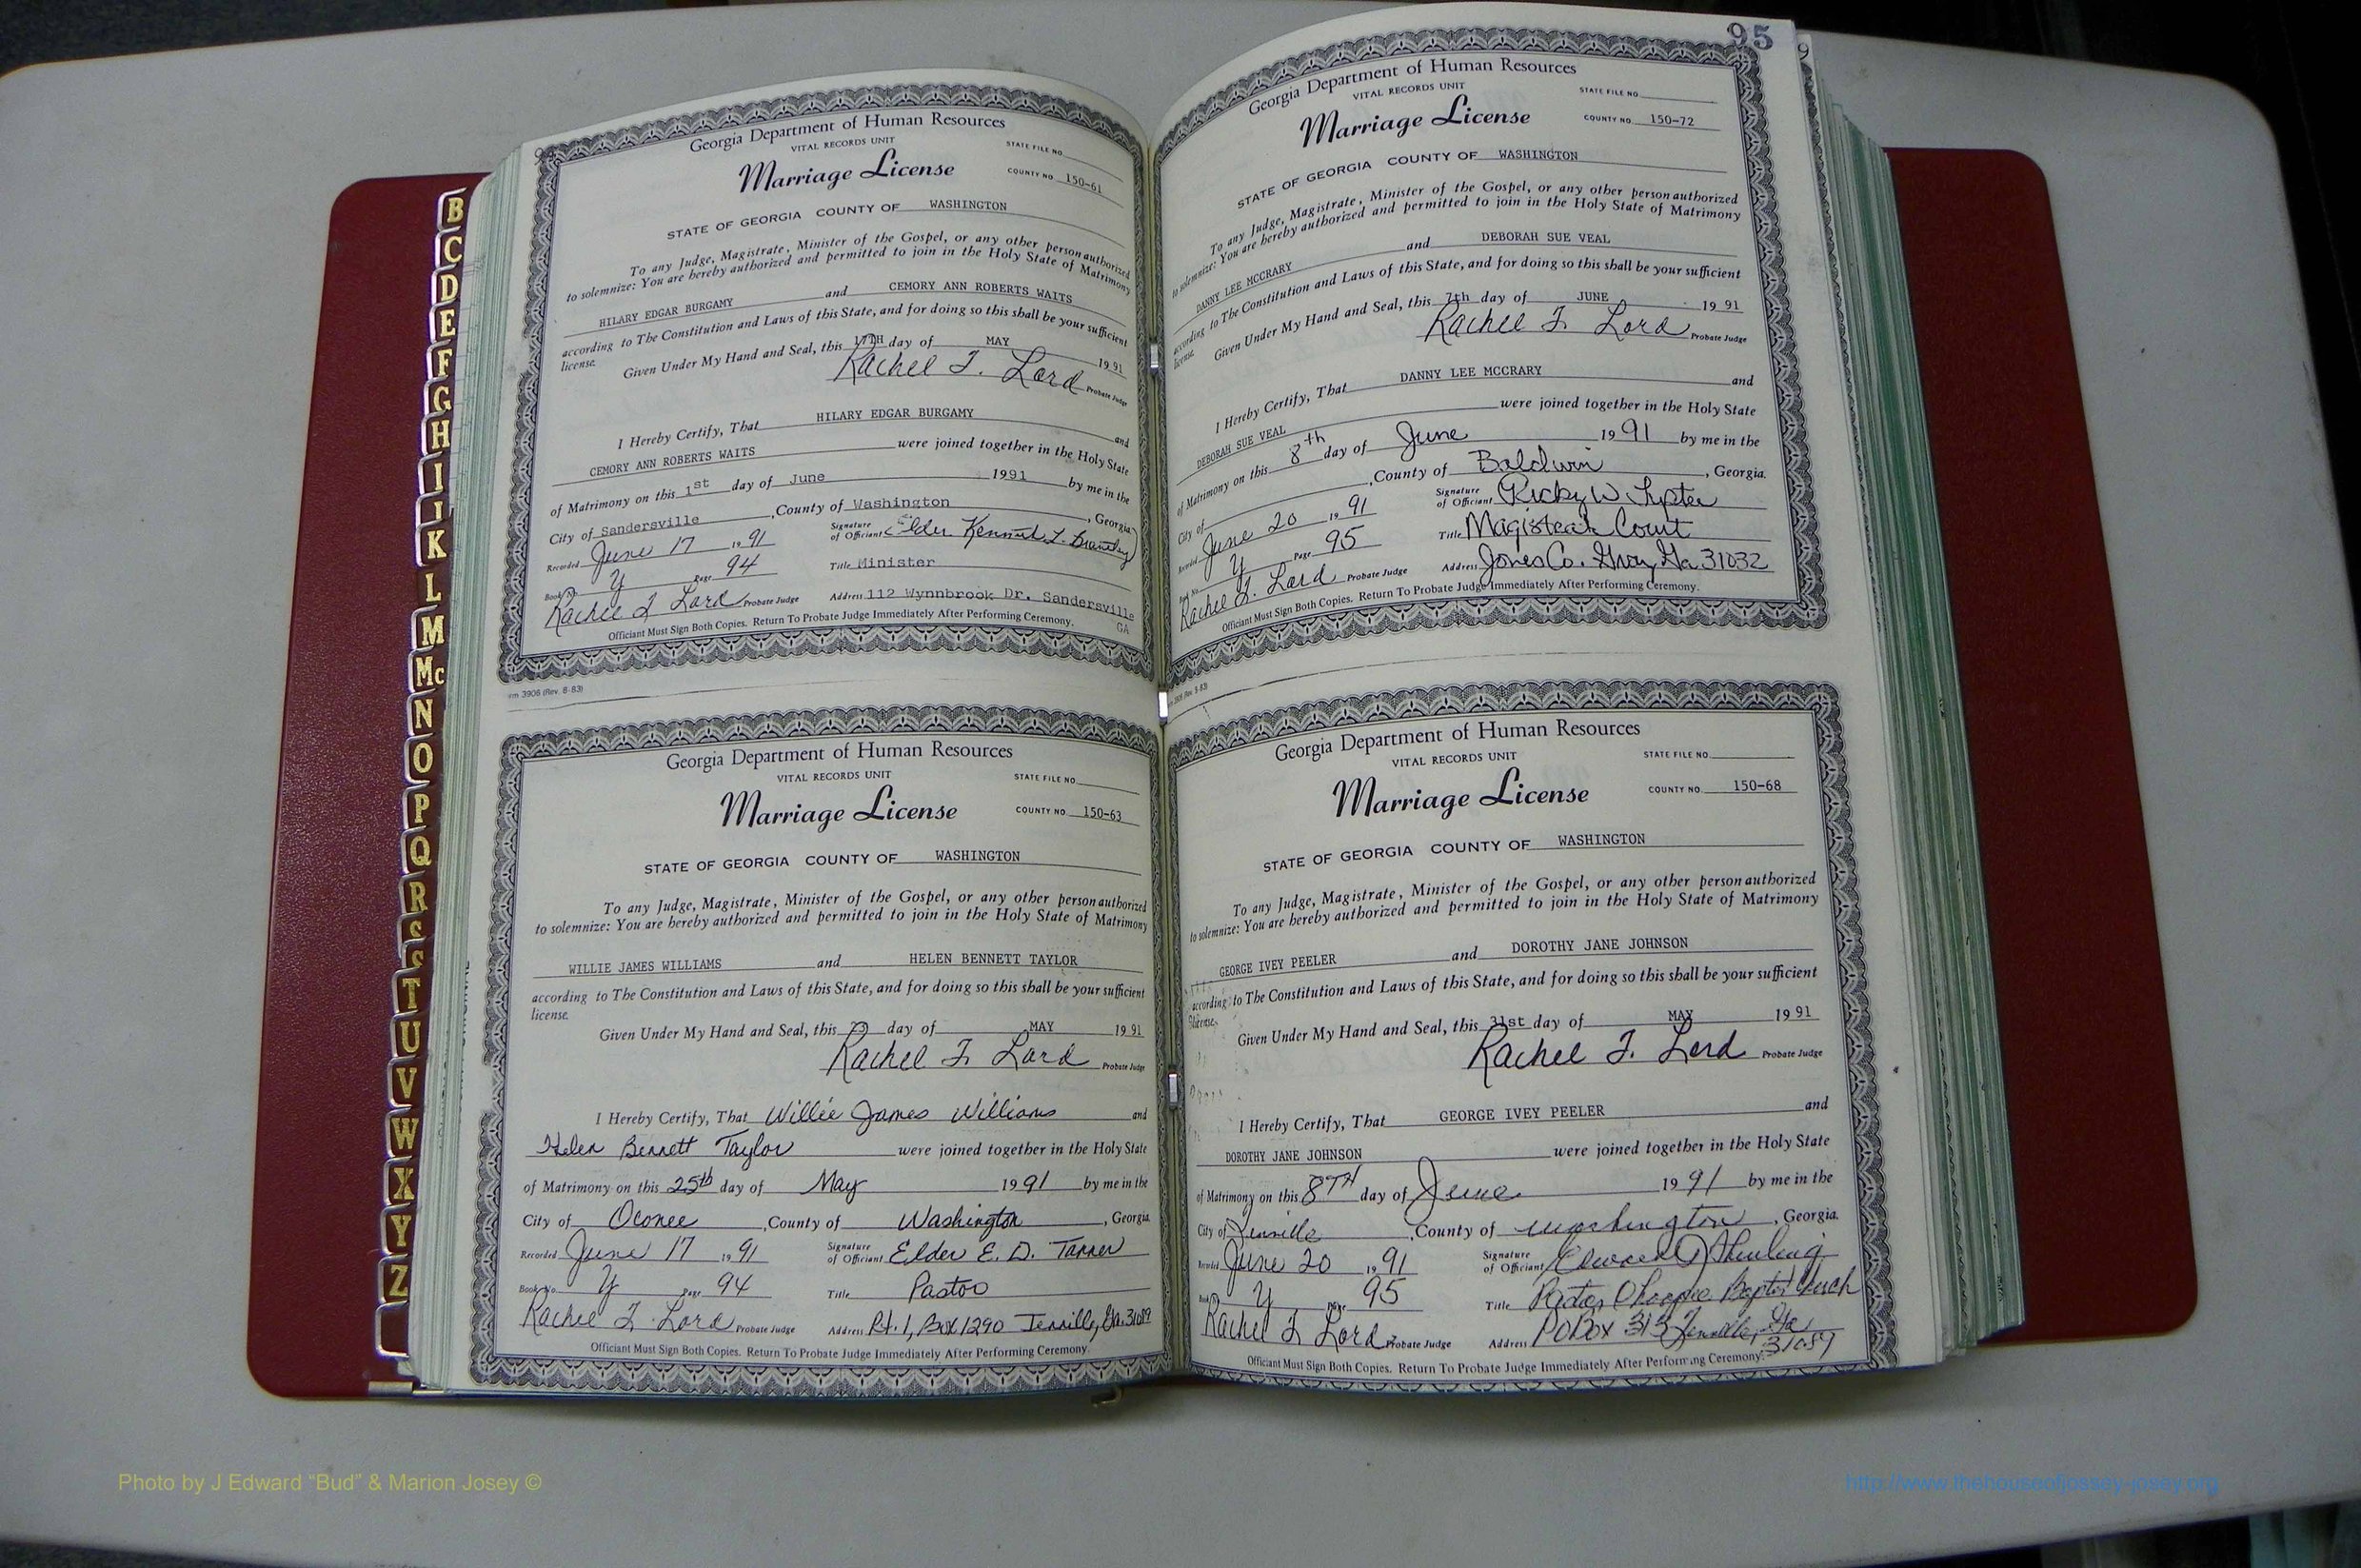 B
C
D
E
F
G
H
I
J
K
L
M
Mc
N
O
P
Q
R
S
T
U
V
W
X
Y
Z
Georgia Department of Human Resources
VITAL RECORDS UNIT
STATE FILE NO.
Marriage License
COUNTY NO. 150-61
STATE OF GEORGIA COUNTY OF WASHINGTON
To any Judge, Magistrate, Minister of the Gospel, or any other person authorized
to solemnize: You are hereby authorized and permitted to join in the Holy State of Matrimony
HILARY EDGAR BURGAMY and CEMORY ANN ROBERTS WAITS
according to The Constitution and Laws of this State, and for doing so this shall be your sufficient
license.
Given Under My Hand and Seal, this 17TH day of MAY 1991
Rachel F. Lord Probate Judge
I Hereby Certify, That HILARY EDGAR BURGAMY and
CEMORY ANN ROBERTS WAITS were joined together in the Holy State
of Matrimony on this 1st day of June 1991 by me in the
City of Sandersville, County of Washington, Georgia
Recorded June 17 1991 Signature of Officiant Elder Kenneth L. Brantley
Book No. Y Page 94 Title Minister
Rachel F Lord Probate Judge Address 112 Wynnbrook Dr. Sandersville
GA
Officiant Must Sign Both Copies. Return To Probate Judge Immediately After Performing Ceremony.
3906 (Rev. 8-83)
Georgia Department of Human Resources
VITAL RECORDS UNIT
STATE FILE NO.
Marriage License
COUNTY NO. 150-63
STATE OF GEORGIA COUNTY OF WASHINGTON
To any Judge, Magistrate, Minister of the Gospel, or any other person authorized
to solemnize: You are hereby authorized and permitted to join in the Holy State of Matrimony
WILLIE JAMES WILLIAMS and HELEN BENNETT TAYLOR
according to The Constitution and Laws of this State, and for doing so this shall be your sufficient
license.
Given Under My Hand and Seal, this 23 day of MAY 1991
Rachel F. Lord Probate Judge
I Hereby Certify, That Willie James Williams and
Helen Bennett Taylor were joined together in the Holy State
of Matrimony on this 25th day of May 1991 by me in the
City of Oconee, County of Washington, Georgia.
Recorded June 17 1991 Signature of Officiant Elder E. D. Tanner
Book No. Y Page 94 Title Pastor
Rachel F. Lord Probate Judge Address Rt. 1, Box 1290 Tennille, Ga. 31089
Officiant Must Sign Both Copies. Return To Probate Judge Immediately After Performing Ceremony.
95
Georgia Department of Human Resources
VITAL RECORDS UNIT
STATE FILE NO.
Marriage License
COUNTY NO. 150-72
STATE OF GEORGIA COUNTY OF WASHINGTON
To any Judge, Magistrate, Minister of the Gospel, or any other person authorized
to solemnize: You are hereby authorized and permitted to join in the Holy State of Matrimony
DANNY LEE MCCRARY and DEBORAH SUE VEAL
according to The Constitution and Laws of this State, and for doing so this shall be your sufficient
license.
Given Under My Hand and Seal, this 7th day of JUNE 1991
Rachel F. Lord Probate Judge
I Hereby Certify, That DANNY LEE MCCRARY and
DEBORAH SUE VEAL were joined together in the Holy State
of Matrimony on this 8th day of June 1991 by me in the
City of , County of Baldwin, Georgia.
June 20 1991 Signature of Officiant Ricky W
Y Page 95 Title Magisteral Court
Rachel F. Lord Probate Judge Address Jones Co. Gray, Ga 31032
Officiant Must Sign Both Copies. Return To Probate Judge Immediately After Performing Ceremony.
Georgia Department of Human Resources
VITAL RECORDS UNIT
STATE FILE NO.
Marriage License
COUNTY NO. 150-68
STATE OF GEORGIA COUNTY OF WASHINGTON
To any Judge, Magistrate, Minister of the Gospel, or any other person authorized
to solemnize: You are hereby authorized and permitted to join in the Holy State of Matrimony
GEORGE IVEY PEELER and DOROTHY JANE JOHNSON
according to The Constitution and Laws of this State, and for doing so this shall be your sufficient
license.
Given Under My Hand and Seal, this 31st day of MAY 1991
Rachel F. Lord Probate Judge
I Hereby Certify, That GEORGE IVEY PEELER and
DOROTHY JANE JOHNSON were joined together in the Holy State
of Matrimony on this 8TH day of June 1991 by me in the
City of Tennille, County of Washington, Georgia.
Recorded June 20 1991 Signature of Officiant
Y Page 95 Title Pastor Baptist Church
Rachel F Lord Probate Judge Address PO Box 313 Tennille, Ga
Officiant Must Sign Both Copies. Return To Probate Judge Immediately After Performing Ceremony.
Photo by J Edward “Bud” & Marion Josey ©
http://www.thehouseofjossey-josey.org